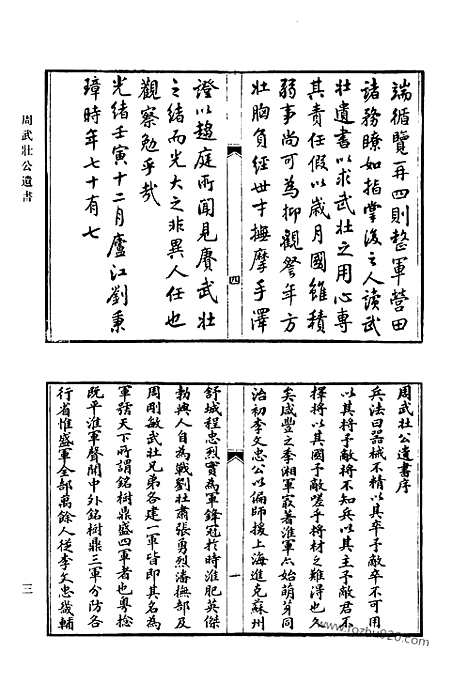 周武壯公遺書
端循覽再四則整軍營田
諸務瞭如指掌後之人讀武
壯遺書以求武壯之用心專
其責任假以歲月國雖積
弱事尚可為抑觀詧年方
壯胸負經世才撫摩手澤
四
證以趨庭所聞見賡武壯
之緒而光大之非異人任也
觀察勉乎哉
光緒壬寅十二月廬江劉秉
璋時年七十有七
周武壯公遺書序
兵法曰器械不精以其卒予敵卒不可用
以其將予敵將不知兵以其主予敵君不
擇將以其國予敵嗟乎將材之難得也久
矣咸豐之季湘軍最著淮軍亦始萌芽同
治初李文忠公以偏師援上海進克蘇州
一
舒城程忠烈實為軍鋒冠於時淮肥英傑
勃興人自為戰劉壯肅張勇烈潘撫部及
周剛敏武壯兄弟各建一軍皆即其名為
軍號天下所謂銘樹鼎盛四軍者也粵捻
既平淮軍聲聞中外銘樹鼎三軍分防各
行省惟盛軍全部萬餘人從李文忠蒞輔
三
www.fozhu920.com